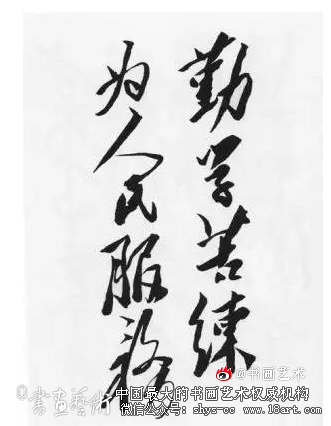 勤学苦练
为人民服务
@书画艺术
书画艺术
中国最大的书画艺术权威机构
微信公众号: shys-cc www.18art.com